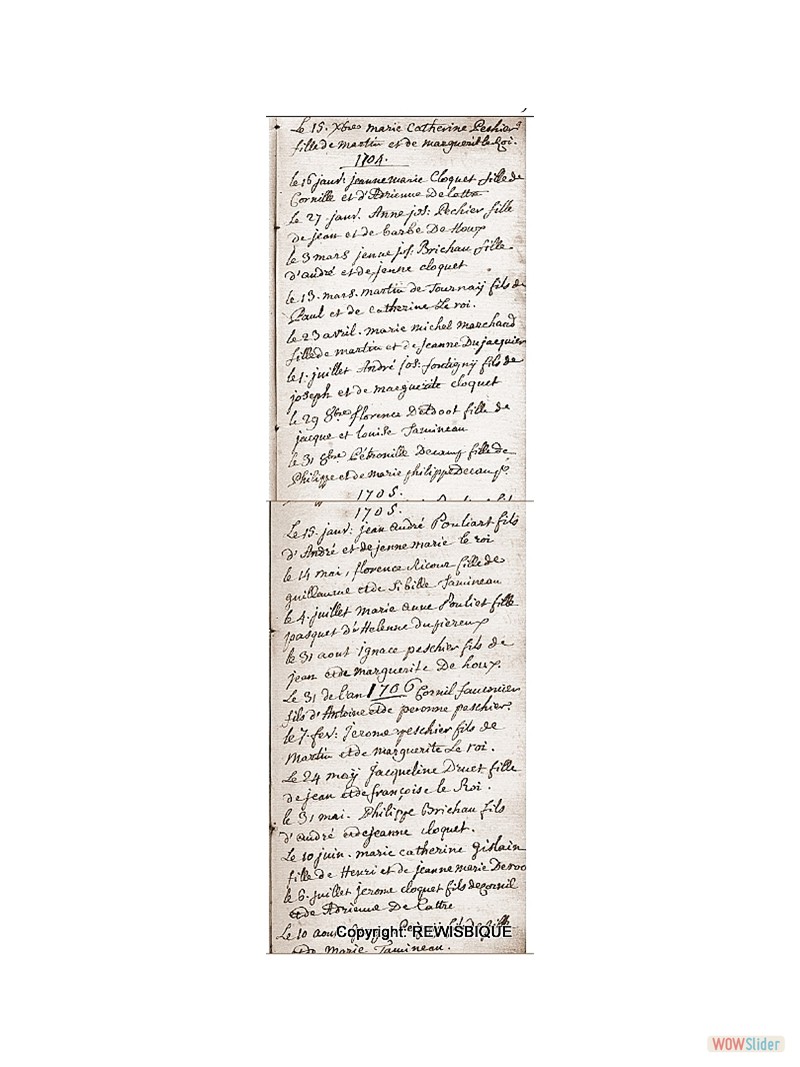 Le 15. Xbres marie Catherine Peshier
fille de martin et de marguerit le Roi.
1704.
le 16 janv: jeanne marie Cloquet fille de
Cornille et d'Adrienne Delattre
Le 27 janv. Anne jos: Pechier fille
de jean et de barbe De Houx
le 3 mars jenne jos. Brichau fille
d'andré et de jenne cloquet
le 13. mars. martin de Tournay fils de
Paul et de catherine Le roi.
le 23 avril. marie michel marchand
fille de martin et de jeanne Dujacquier
le 1. juillet André jos: fontigny fils de
joseph et de marguerite cloquet
le 29 8bre florence Deldoot fille de
jacque et louise Tamineau
le 31 8bre Pétronille Decamp fille de
Philippe et de marie philippe Decamp.
1705.
1705.
Le 15. janv: jean andré Pouliart fils
d'André et de jenne marie le roi
le 14 mai, florence Ricour fille de
guillaume et de Sibille Tamineau
le 4. juillet marie anne Pouliot fille
pasquet d'Helenne dupiereux
le 31 aout ignace peschier fils de
jean et de marguerite De houx.
Le 31 de l'an 1706 Cornil
fils d'Antoine et de peronne peschier
le 7. fev: jerome peschier fils de
Martin et de marguerite Le roi.
Le 24 may Jacqueline Druet fille
de jean et de françoise le Roi.
le 31 mai. Philippe Brichau fils
d'andré et de jeanne cloquet.
Le 10 juin. marie catherine Gislain
fille de Henri et de jeanne marie
le 6. juillet jerome cloquet fils de cornil
et de Adrienne De Lattre
Le 10 aout
Copyright: REWISBIQUE
et de Marie Tamineau.
WOWSlider